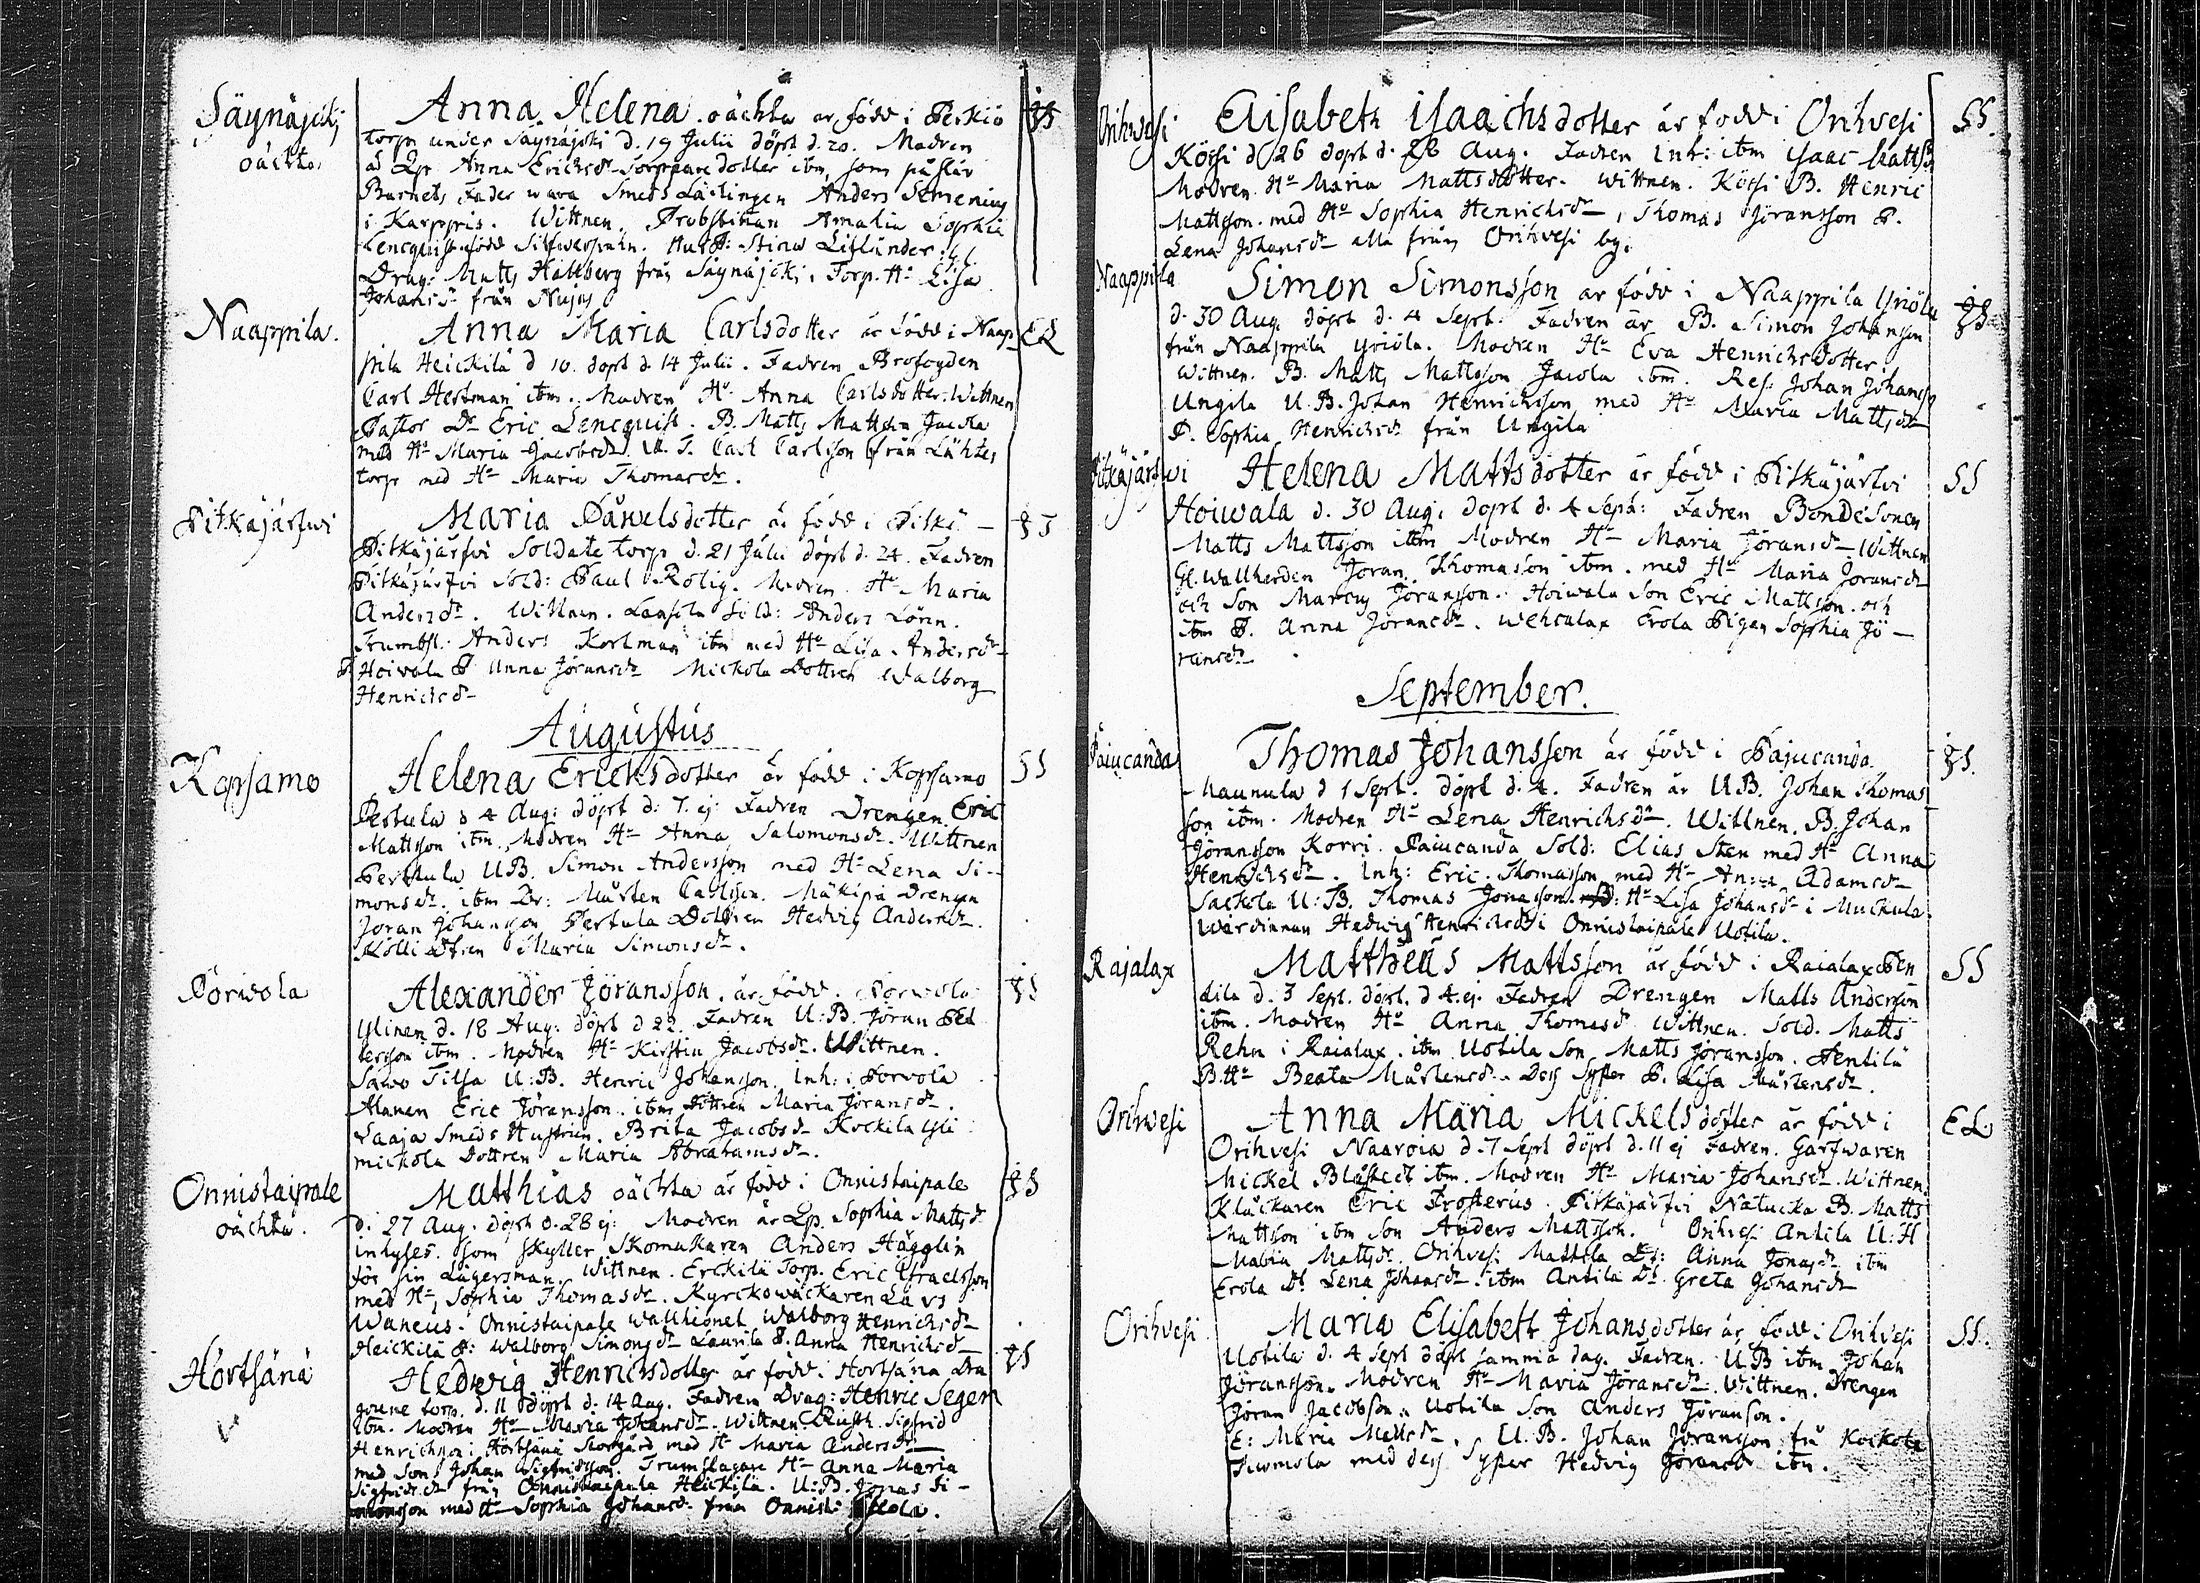 Säynäjoki
oächta.
Anna Helena oächta är född i Perkiö
torp under Säynäjoki d. 19 Julii döpt d. 20. Modren
är Anna Ericksdr Torppare dotter ibm, som påstår
Barnets Fader wara Smeds Lärlingen Anders
i Karppris. Wittnen Probstinan Amalia Sophia
Lencquist född Silfwerspahn. Stina
Drag: Matts Hallberg från Säynäjoki, Torp. Hu Lisa
Johansdr från
Naappila.
Anna Maria Carlsdotter är född i Naap
pila Heickilä d 10. döpt d. 14 Julii. Fadren Profogden
Carl Hestman ibm. Modren Hu Anna Carlsdotter. Wittnen
Pastor Dr Eric Lencquist. B. Matts Mattson
med Hu Maria Jacobsdr. Carl Carlsson från Lähtes
torp med Hu Maria Thomasdr.
EL
Pitkäjärfwi
Maria Pawelsdotter är född i Pitkä
Pitkäjärfwi Soldate torp d. 21 Julii döpt d. 24. Fadren
Pitkäjärfwi Sold: Paul Rolig. Modren Hu Maria
Andersdr. Wittnen. Sold: Anders Lönn.
Trumbsl: Anders Kortman ibm med Hu Lisa Andersdr
Hoivala P Anna Jöransdr Mickola Dottren Walborg
Henricsdr
Augustus
Kopsamo
Helena Ericksdotter är född i Kopsamo
SS
Pertula d 4 Aug: döpt d: 7. ej. Fadren Drengen Eric
Mattsson ibm. Modren Hu Anna Salomonsdr. Wittnen
Perttula UB. Simon Andersson med Hu Lena Si-
monsdr. ibm Dr: Mårten Carlsson. Mäkipä Drengen
Jöran Johansson Pertula Dottren Hedvig Andersdr.
Kölli Maria Simonsdr.
Pörwola
Alexander Jöransson är född
Ylinen d. 18 Aug: döpt d 22. Fadren U:B. Jöran Pet
tersson ibm. Modren Hu Kirstin Jacobsdr. Wittnen.
Sawo U:B. Henric Johansson. Inh:
Alanen Eric Jöransson. ibm Dottren Maria Jöransdr.
Laaja Smeds Hustrun. Brita Jacobsdr Kockila
mickola Dottren Maria Abrahamsdr.
Onnistaipale
oächta.
Matthias oächta är född i Onnistaipale
d. 27 Aug. döpt d. 28 ej: Modren är Sophia Mattsdr
inhyses. som skyller Skomakaren Anders Hägglin
för sin Lägersman. Wittnen. Erckilä Torp. Eric Israelsson
med Hu Sophia Thomasdr. Kyrckowäckaren Lars
Waneus. Onnistaipale Walborg Henricksdr
Heickilä P: Walborg Simonsdr Laurila P. Anna Henricksdr
Hörtsänä
Hedwig Henricksdotter är född i Hörtsänä Dra
goune torp. d. 11 döpt d. 14 Aug. Fadren Drag: Henric Segem
ibm. Modren Hu Maria Johansdr. Wittnen. Sigfrid
Henricksson i Hörtsänä Storgård med Hu Maria Andersdr
med Son Johan Sigfridsson. Trumslagare Hu Anna Maria
Sigfridsdr från Onnistaipale Heickilä. U:B. Jonas Si-
monsson med Hu Sophia Johansdr från
Orihvesi
Elisabeth Isaachsdotter är född i Orihvesi
SS.
Kössi d 26 döpt d. 28 Aug. Fadren Inh: ibm Isaac Mattss
Modren Hu Maria Mattsdotter. Wittnen. Kössi B. Henric
Mattsson med Hu Sophia Henricksdr, Thomas Jöransson P.
Lena Johansdr alla från Orihvesi by.
Naappila
Simon Simonsson är född i Naappila Yriölä
d. 30 Aug. döpt d. 4 Sept. Fadren är B. Simon Johanson
från Naappila Yriölä. Modren Hu Eva Henricksdotter.
Wittnen. B. Matts Mattsson ibm. Res: Johan Johansson
Ungila U.B. Johan Henricksson med Hu Maria Mattsdr
P. Sophia Henricksdr från Ungila
Pitkäjärfwi
Helena Mattsdotter är född i Pitkäjärfwi
SS
Hoiwala d. 30 Aug: döpt d. 4 Sept: Fadren Bonde Sonen
Matts Mattsson ibm Modren Hu Maria Jöransdr Wittnen
Gl. Jöran Thomasson ibm. med Hu Maria Jöransdr
och Son Marcus Jöransson. Hoiwala Son Eric Mattsson. och
ibm P. Anna Jöransdr. Erola Pigan Sophia Jö-
ransdr
September.
Pajucanda
Thomas Johansson är född i Pajucanda
Maunula d 1 Sept. döpt d. 4. Fadren är U.B. Johan Thomas
son ibm. Modren Hu Lena Henricksdr. Wittnen. B. Johan
Jöransson Korri. Paiucanda Sold: Elias Sten med Hu Anna
Henricksdr. Inh: Eric Thomasson med Hu Anna Adamsdr
Sackola U:B. Thomas Jonasson. Hu Lisa Johansdr i Muckula
Wärdinnan Hedwig Henricksdr i Onnistaipale Uotila.
Rajalax
Matthias Mattsson är född i Raialax Pen
SS
tila d. 3 Sept. döpt. d 4. ej. Fadren Drengen Matts Andersson
ibm. Modren Hu Anna Thomasdr Wittnen. Sold. Matts
Rehn i Raialax. ibm Uotila Son Matts Jöransson. Pentilä
B. Hu Beata Mårtensdr. Dess Syster P. Lisa Mårtensdr.
Orihwesi
Anna Maria Mickelsdotter är född i
EL.
Orihvesi Naaroia d. 7 Sept döpt d. 11 ej Fadren. Garfwaren
Mickel Blåfield ibm. Modren Hu Maria Johansdr. Wittnen.
Klåckaren Eric Frosterus. Pitkäjärfwi B. Matts
Mattson ibm Son Anders Mattsson. Orihvesi Antila U:H
Maria Mattsdr. Orihvesi Mattila Anna Jonasdr ibm
Erola Dr Lena Johansdr ibm Antila Dr Greta Johansdr
Orihvesi
Maria Elisabeth Johansdotter är född i Orihvesi
SS.
Uotila d. 4 Sept döpt samma dag. Fadren. U:B ibm Johan
Jöransson. Modren Hu Maria Jöransdr. Wittnen. Drengen
Jöran Jacobsson. Uotila Son Anders Jöransson.
E: Maria Mattsdr. U.B. Johan Jöransson
med dess Syster Hedvig Jöransdr ibm.